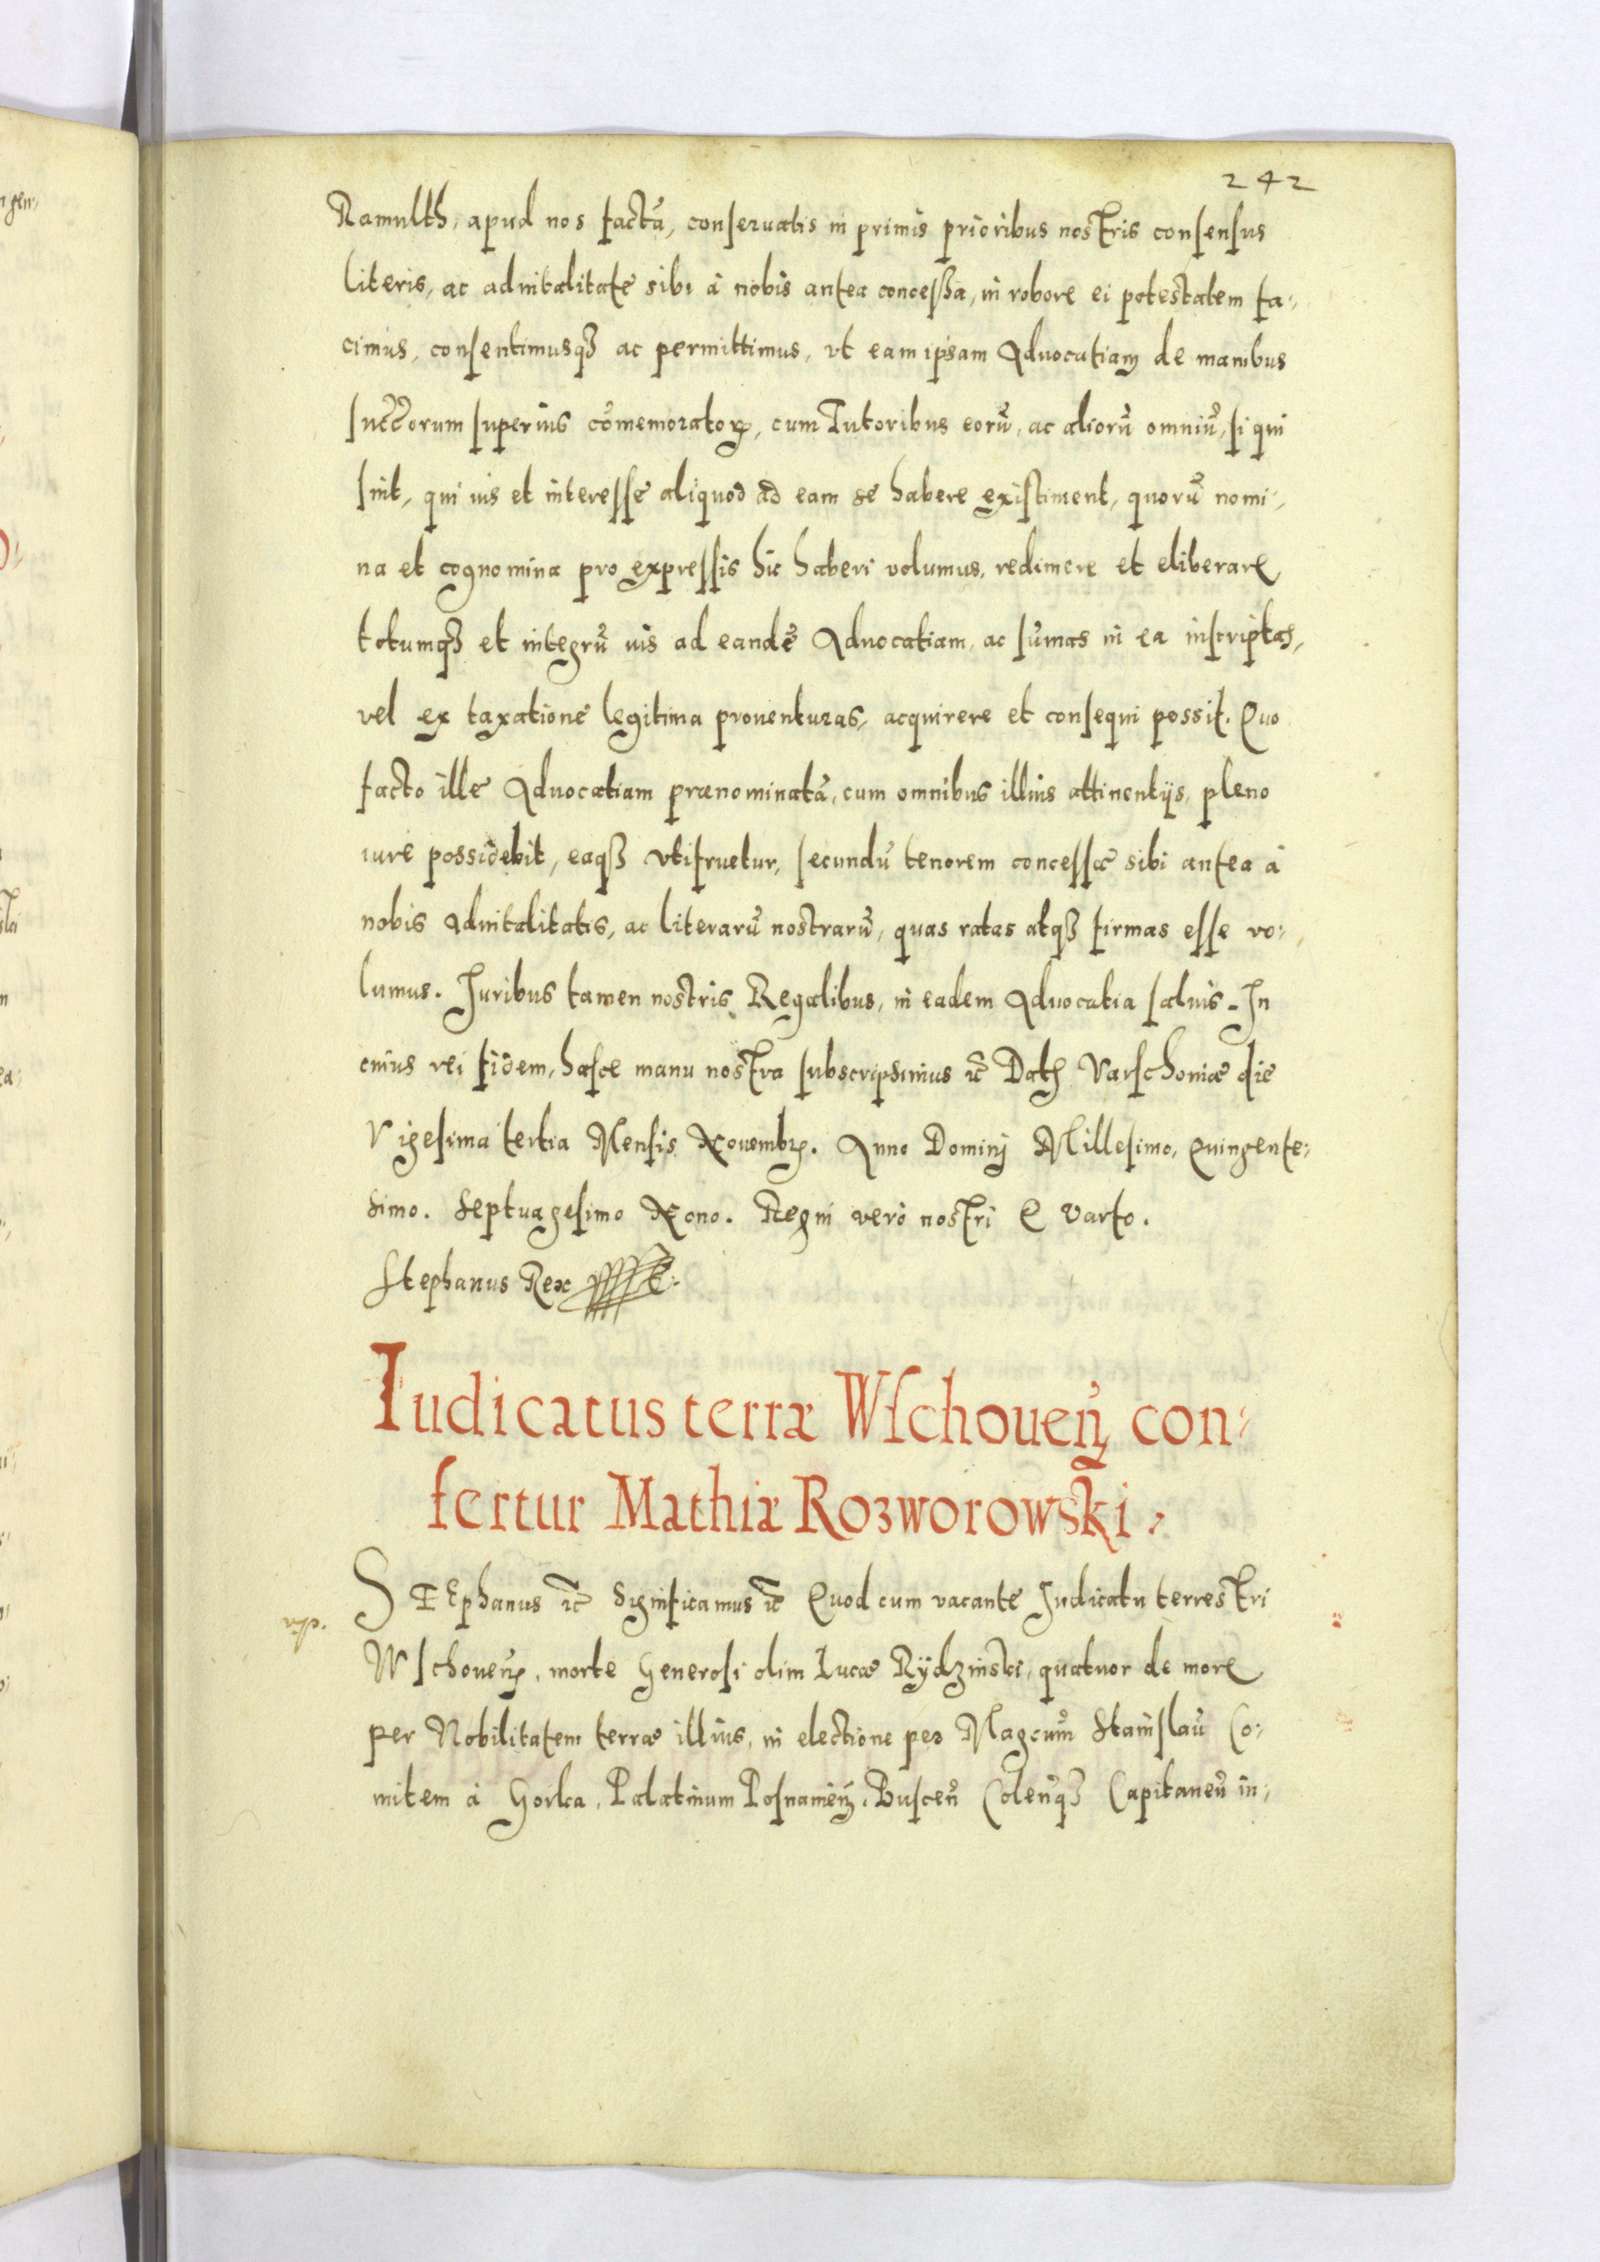 242
Ramulth, apud nos factã, conseruatis in primis prioribus nostris consensus
literis, ac aduitalitate sibi à nobis antea concessa, in robore ei potestatem fa-
cimus, consentimusqȝ ac permittimus, vt eam ipsam Aduocatiam de manibus
succorum superius cõmemoratoꝝ, cum Tutoribus eorũ, ac aliorũ omniũ, si qui
sint, qui ius et interesse aliquod ad eam se habere existiment, quorũ nomi-
na et cognomina pro expressis hic haberi volumus, redimere et eliberare
totumqȝ et integrũ ius ad eandẽ Aduocatiam, ac sũmas in ea inscriptas,
vel ex taxatione legitima prouenturas, acquirere et consequi possit. Quo
facto ille Aduocatiam prænominatã, cum omnibus illius attinentijs, pleno
iure possidebit, eaqȝ vtifruetur, secundũ tenorem concessæ sibi antea à
nobis Aduitalitatis, ac literarũ nostrarũ, quas ratas atqȝ firmas esse vo-
lumus. Juribus tamen nostris Regalibus, in eadem Aduocatia saluis. In
cuius rei fidem, hasce manu nostra subscripsimus etc̃ Datҙ Varschouiæ die
Vigesima tertia Mensis Nouembrҙ. Anno Dominj Millesimo, Quingente-
simo. Septuagesimo Nono. Regni verò nostri Quarto.
Stephanus Rex
Iudicatus terræ Wschoueñ con-
fertur Mathiæ Rozworowski.
STEphanus etc̃ Significamus etc̃ Quod cum vacante Judicatu terrestri
Wschoueñ, morte Generosi olim Lucæ Rÿdzinski, quatuor de more
per Nobilitatem terræ illius, in electione per Magcum̃ Stanislaũ Co-
mitem à Gorka, Palatinum Posnanieñ, Busceñ Coleñqȝ Capitaneũ in-